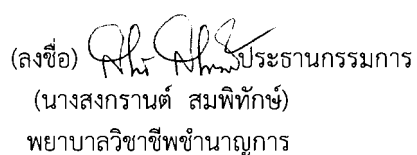 (ลงชื่อ) ประธานกรรมการ
(นางสงกรานต์ สมพิทักษ์)
พยาบาลวิชาชีพชำนาญการ